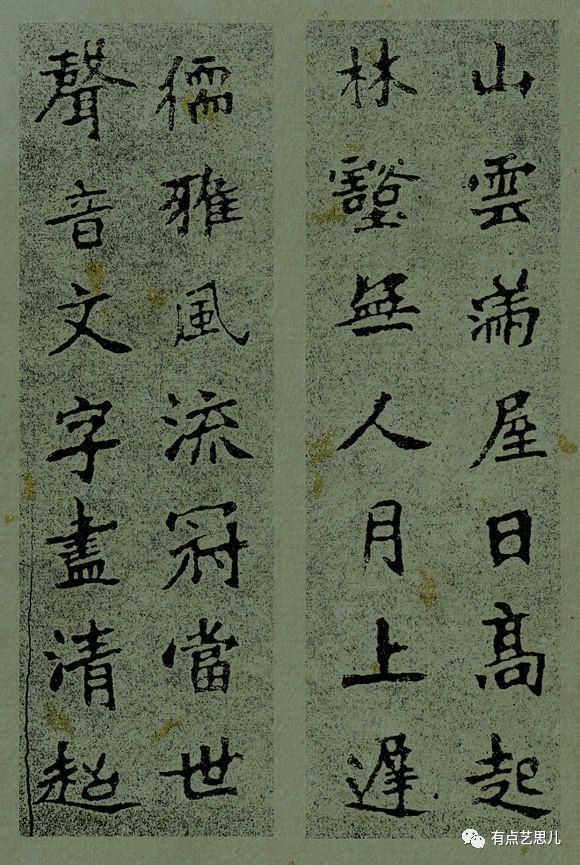 山雲滿屋日高起
林壑無人月上遲
儒雅風流冠當世
聲音文字盡清超
有点艺思儿